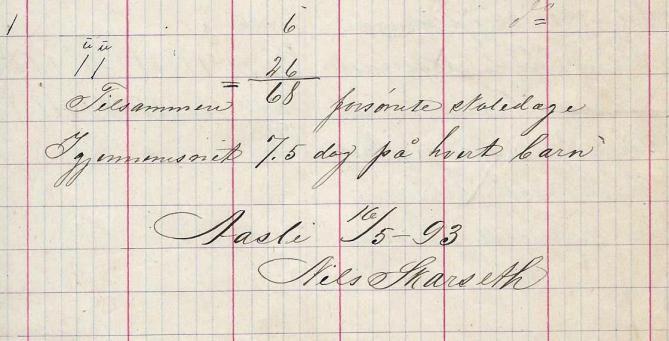 1 6
ü ü
11 = 26
Tilsammen 68 forsømte skoledage
I gjennemsnit 7.5 dag på hvert barn
Aasli 16/5-93
Nils Skarseth